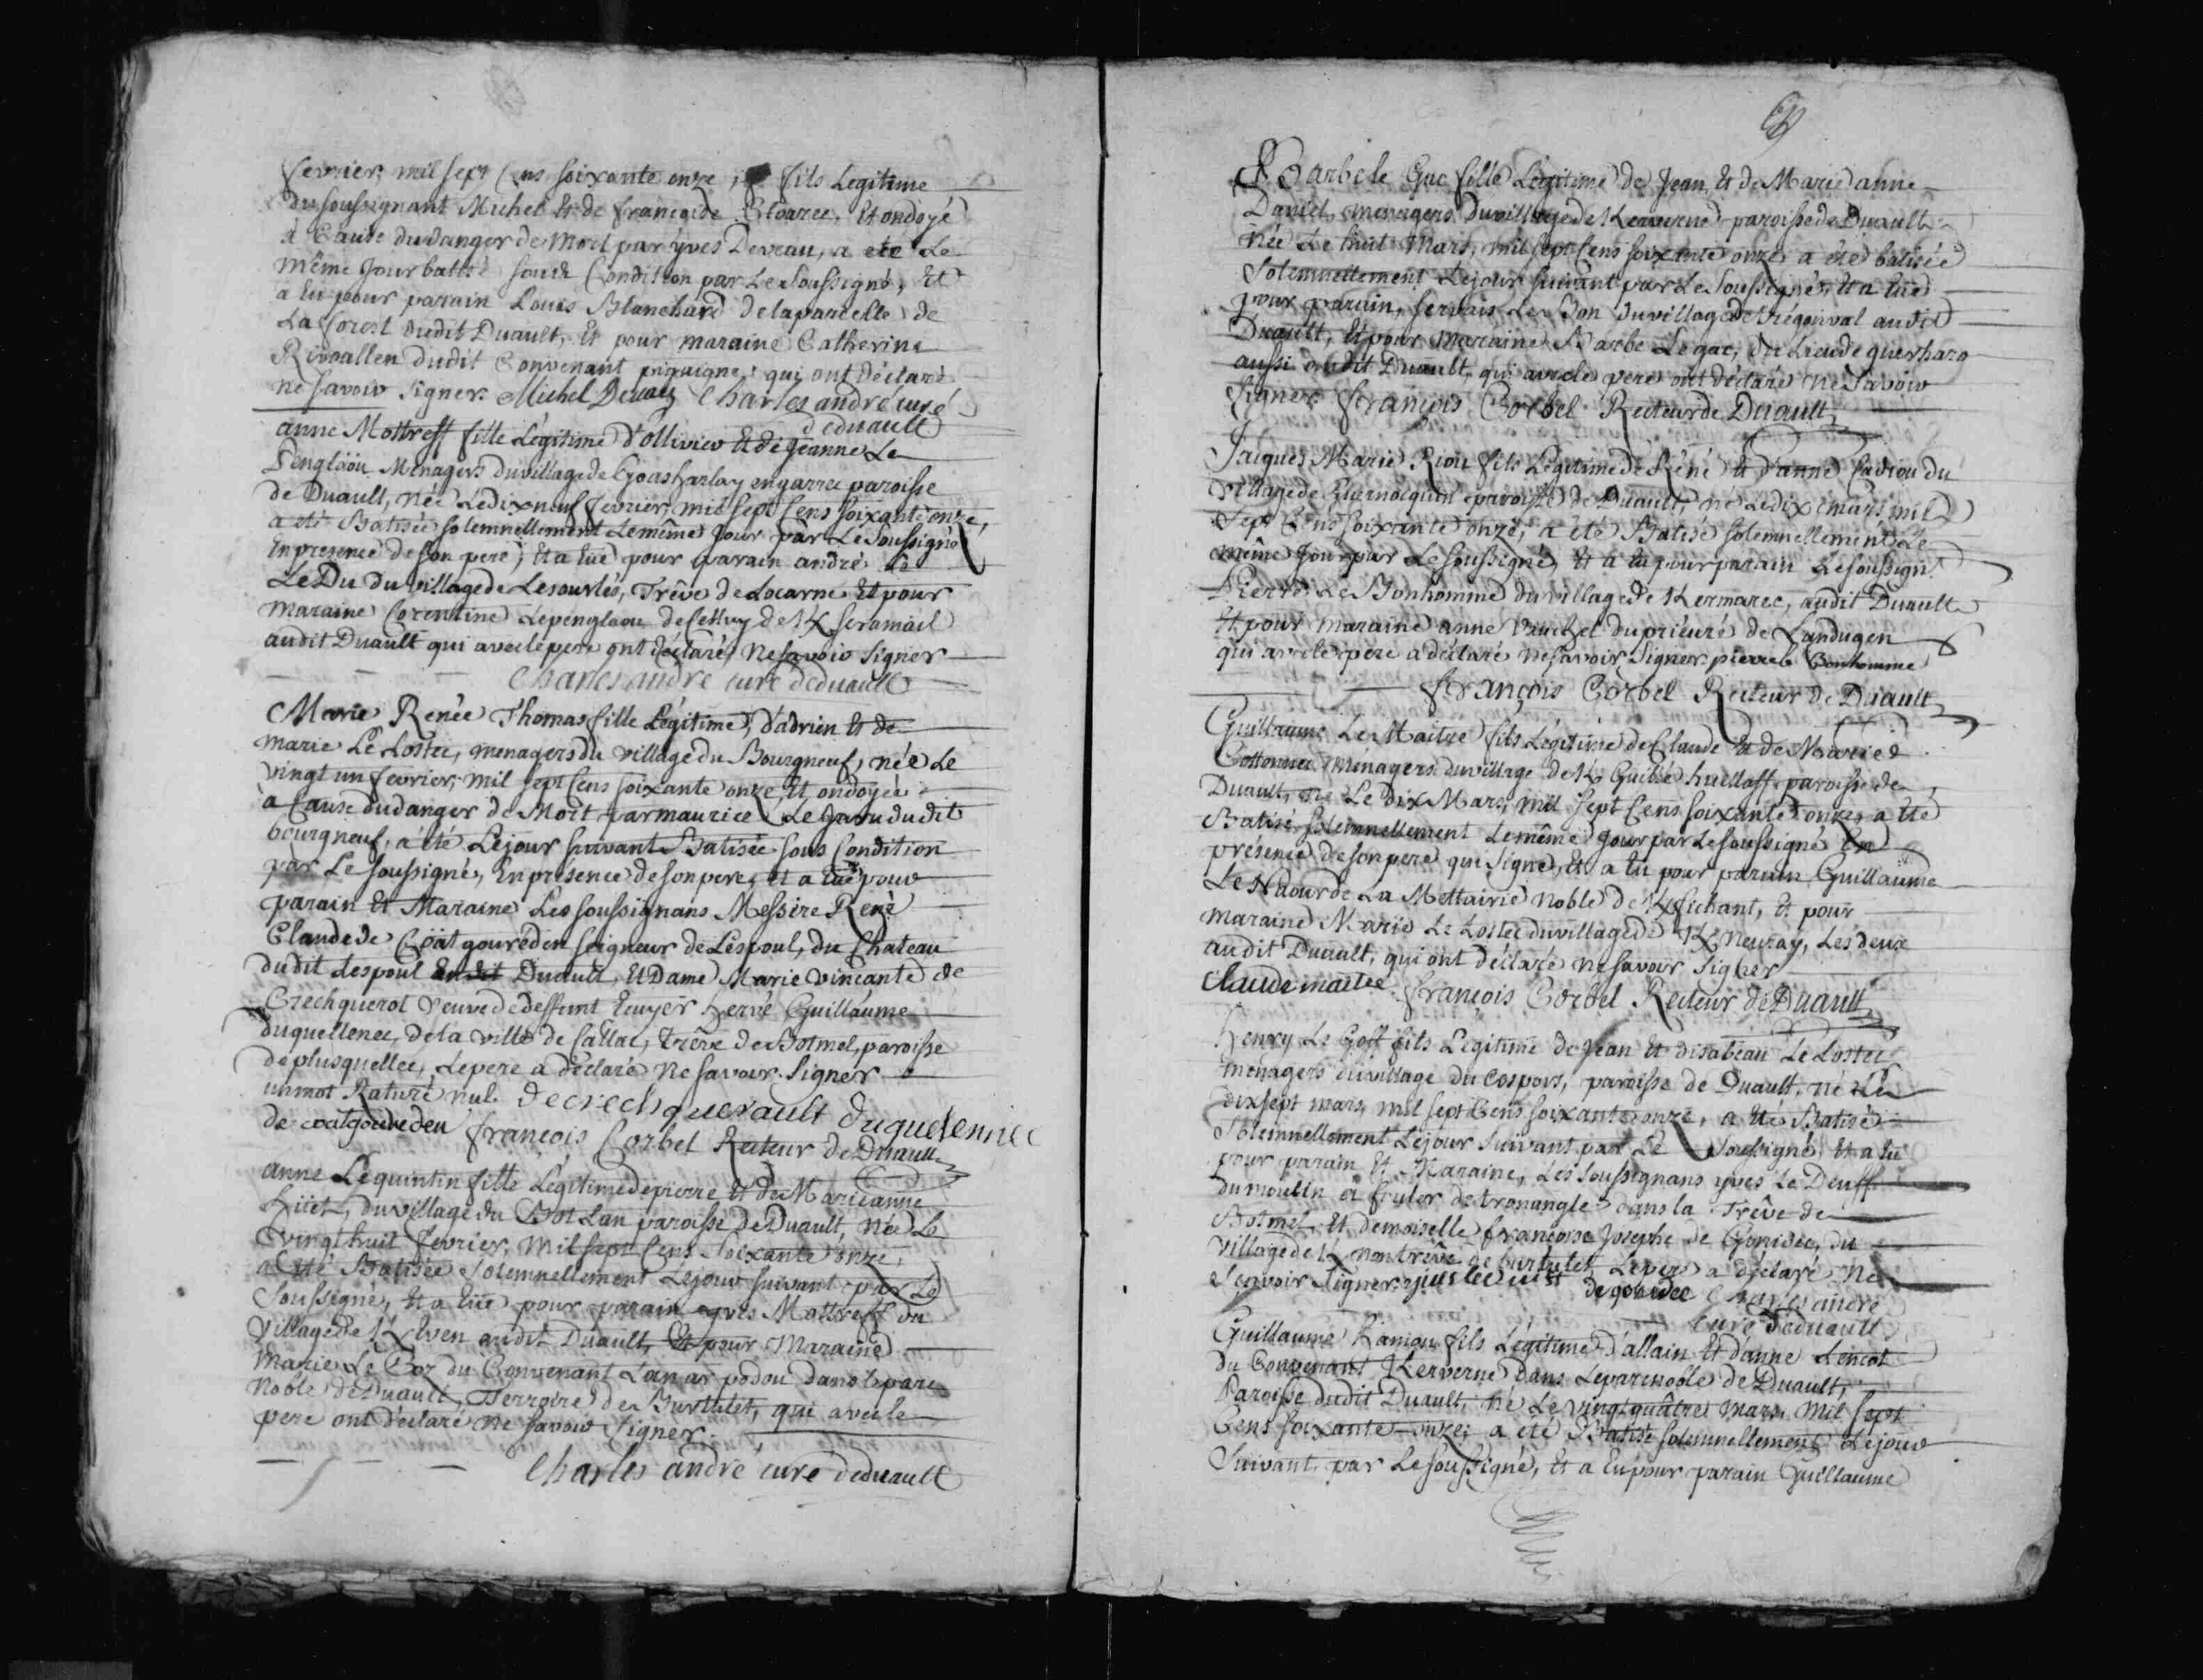 fevrier, mil sept Cens soixante onze, fils Legitime
du soussignant Michel Et de françoise Cloarec, Et ondoyé
à Cause du danger de Mort par yves Deveau, a été Le
même Jour batisé sous Condition par Le soussigné, Et
a Eu pour parain Louis Blanchard de la parcelle de
La forest dudit Duault, Et pour maraine Catherine
Rivoallen dudit Convenant qui ont déclaré
ne savoir signer. Michel Charles andré curé
deduault
anne Mottreff fille Légitime d'ollivier Et de jeanne Le
Penglaou Ménagers du village de Goasharlay engarre paroisse
de Duault, née Le dix neuf fevrier, mil sept Cens soixante onze,
a été Batisée solemnellement Le même Jour par Le Soussigné
En presence de son pere, Et a Eüe pour parain andré
Le Du du village de Lesourlès, Trêve de Locarne Et pour
maraine Corentine Lepenglaou de Celluy de K/seramail
audit Duault qui avec le pere ont déclaré ne savoir signer
Charles andré curé deduault
Marie Renée Thomas fille Légitime, d'adrien Et de
marie Le Lostec, menagers du village du Bourgneuf, née Le
vingt un fevrier, mil sept Cens soixante onze, Et ondoyée
a Cause du danger de Mort par maurice Le dudit
bourgneuf, a été Le jour suivant Batisée sous Condition
par Le soussigné, En présence de son pere, et a Eüe pour
parain Et Maraine Les soussignans Messire René
Claude de Cöatgouréden seigneur de Lespoul, du Chateau
dudit Lespoul Duault, Et Dame Marie vincante de
Crechquerot veuve de deffunt Ecuyer hervé Guillaume
duquellenec, de la ville de Callac, Trêve de Botmel, paroisse
de plusquellec, Le pere a déclaré ne savoir signer
un mot Raturé nul. decrechquerault duquelennec
de coatgoureden françois Corbel Recteur de Duault
anne Le quintin fille Légitime de pierre Et de Marie anne
hüet, du village du Bot Lan paroisse de Duault, née Le
vingt huit fevrier, Mil sept Cens Soixante onze,
a été Batisée Solemnellement Le jour suivant par Le
Soussigné, Et a Eüe pour parain yves Mottreff du
village de K/Even audit Duault, Et pour Maraine
Marie Le Coz du Convenant Lanar podou dans le parc
Noble de Duault, Terroire de Burthulet, qui avec le
pere ont déclaré ne savoir signer.
Charles andré curé deduault
Barbe le Gac fille Légitime de Jean Et de Marie anne
Daniel, ménagers du village de Kerverne paroisse de Duault
née Le huit Mars, mil sept Cens soixante onze a été batisée
Solemnellement Le jour suivant par Le Soussigné, Et a Eüe
pour parain, servais Le Bon du village de Trégonval audit
Duault, Et pour Maraine Barbe Le gac, du Lieu de querharo
aussi audit Duault, qui avec le pere ont déclaré ne Savoir
signer françois Corbel Recteur de Duault
Jacques Marie Riou fils Légitime de Réné Et d'anne Cadiou du
village de Guernocquin paroisse de Duault, né Le dix mars mil
Sept Cens soixante onze, a été Batisé solemnellement Le
même Jour par Le soussigné, Et a Eu pour parain Le soussigné
Pierre Le Bonhomme du village de Kermarec, audit Duault
Et pour maraine anne du prieuré de Landugen
qui avec le pere a déclaré ne savoir signer. pierre le Bonhomme
françois Corbel Recteur de Duault
Guillaume Le Maitre fils Légitime de Claude Et de Marie
Cottonnec ménagers du village de K/Guibé huellaff paroisse de
Duault, né Le Dix Mars, mil Sept Cens soixante onze, a été
Batisé Solemnellement Le même Jour par Le soussigné En
presence de son pere qui signe, Et a Eu pour parain Guillaume
Le Nadour de La Mettairie Noble de K/fichant, Et pour
maraine Marie Le Lostec du village de K/Neuzay, Les deux
audit Duault, qui ont déclaré ne savoir Signer
claude maitre françois Corbel Recteur de Duault
henry Le Goff fils Legitime de Jean Et d'isabeau Le Lostec
ménagers du village du Cosporz, paroisse de Duault, né Le
dix sept mars, mil sept Cens soixante onze, a été Batisé
Solemnellement Le jour Suivant par Le Soussigné, Et a Eu
pour parain Et Maraine, Les soussignans yves Le Deuff
du moulin à fouler de tronangle dans la Trêve de
Botmel Et demoiselle françoise Josephe de Gonidec, du
village de Trêve de burtulet, Le pere a déclaré Ne
Sçavoir Signer de gonidec Charles andré
curé deduault
Guillaume hamon fils Légitime d'allain Et d'anne Lencot
du Convenant Kerverne dans Le parc noble de Duault,
Paroisse dudit Duault, né Le vingt quâtre mars, Mil Sept
Cens soixante onze, a été Batisé solemnellement Le jour
Suivant par Le soussigné, Et a Eu pour parain Guillaume